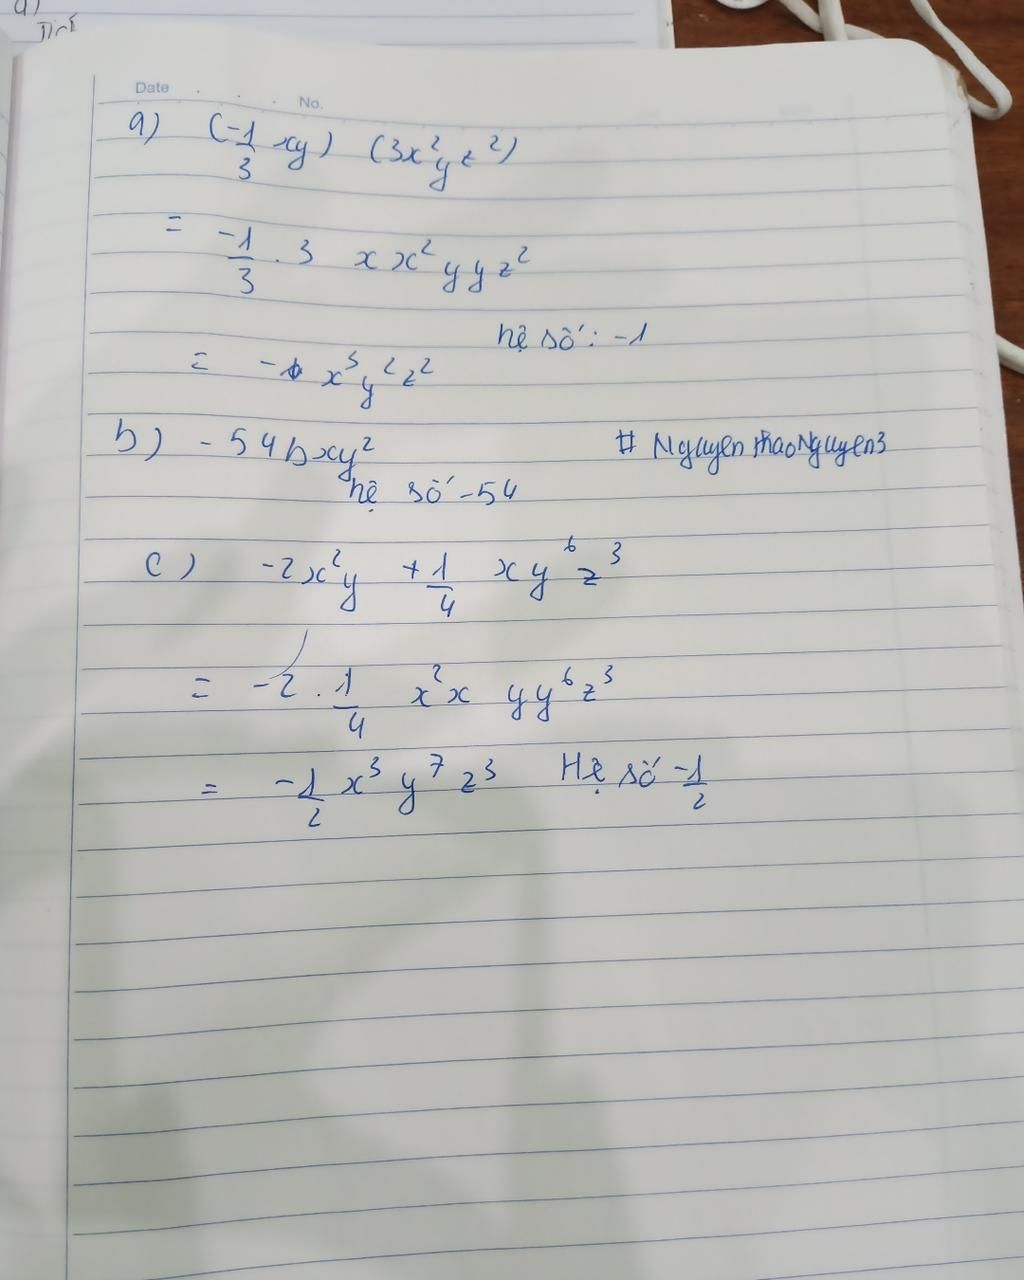 Date No.
a) (-1/3 xy) (3x²yz²)
= -1/3 . 3 x x² y y z²
hệ số: -1
= -1 x³y²z²
b) -54bxy²
# NguyenThaoNguyen3
hệ số -54
c) -2x²y + 1/4 xy⁶z³
= -2 . 1/4 x²x yy⁶z³
= -1/2 x³y⁷z³ Hệ số -1/2